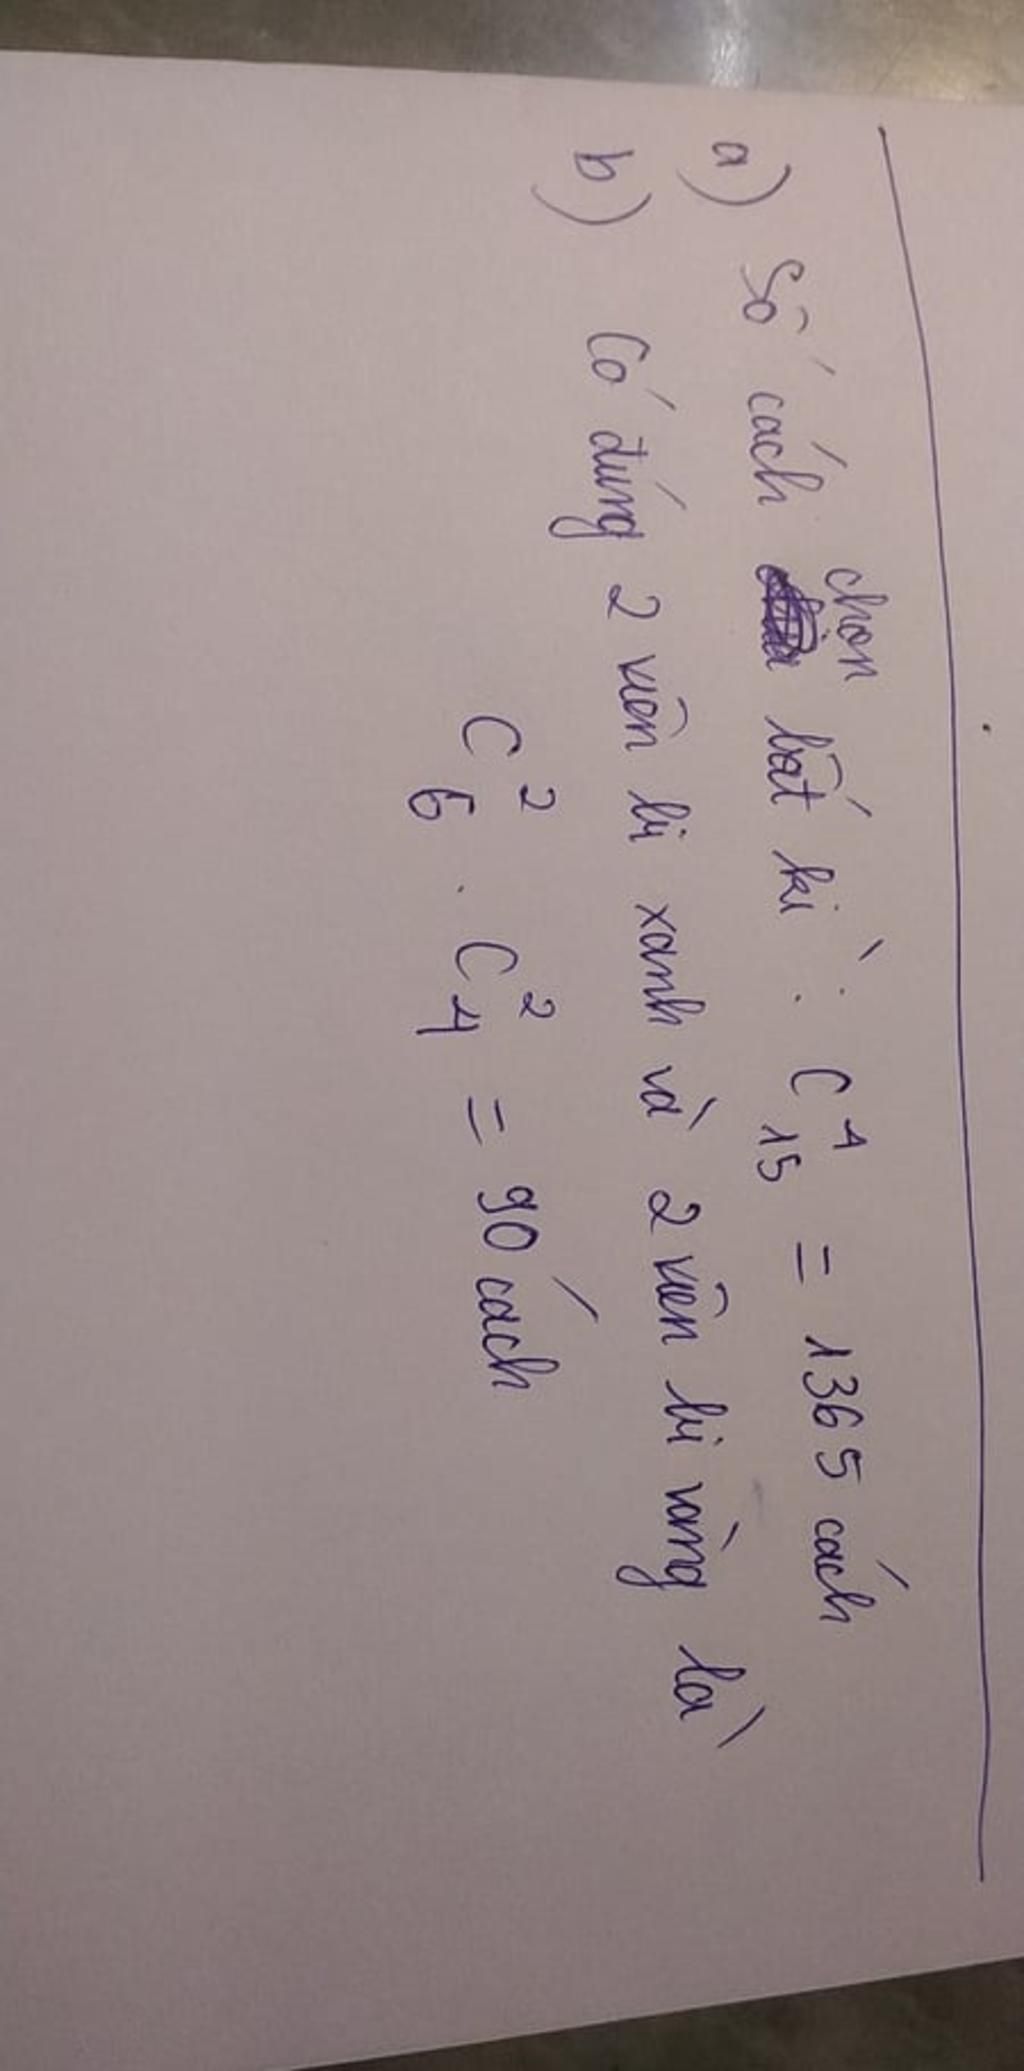 a) Số cách chọn bất kì : C⁴₁₅ = 1365 cách
b) Có đúng 2 viên bi xanh và 2 viên bi vàng là
C²₆ . C²₄ = 90 cách